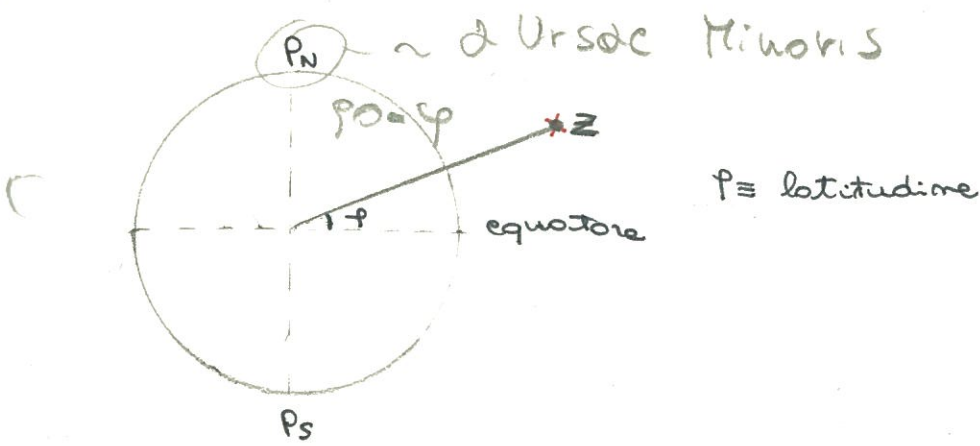 P_N ~ α Ursae Minoris
90-φ
Z
φ ≡ latitudine
φ
equatore
P_S